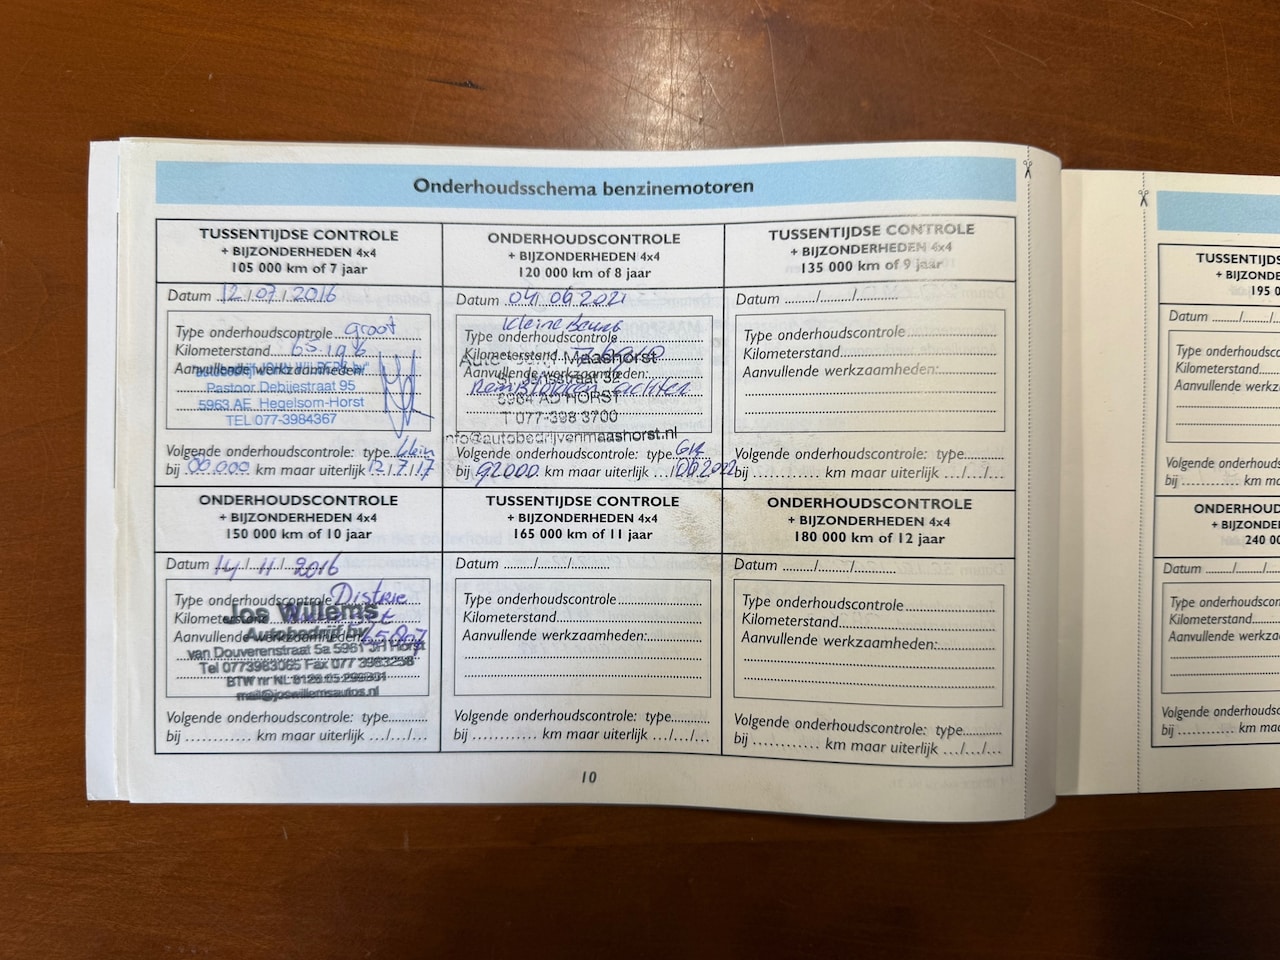 Onderhoudsschema benzinemotoren
TUSSENTIJDSE CONTROLE
+ BIJZONDERHEDEN 4x4
105 000 km of 7 jaar
Datum 12/07/2016
Type onderhoudscontrole groot
Kilometerstand
Aanvullende werkzaamheden:
Pastoor Debijestraat 95
5963 AE Hegelsom-Horst
TEL 077-3984367
Volgende onderhoudscontrole: type klein
bij km maar uiterlijk 12/7/17
ONDERHOUDSCONTROLE
+ BIJZONDERHEDEN 4x4
120 000 km of 8 jaar
Datum 04/06 2021
kleine Beurt
Type onderhoudscontrole
Kilometerstand
Maashorst
Aanvullende werkzaamheden:
achter
5964 AD HORST
T 077-398 3700
info@autobedrijvenmaashorst.nl
Volgende onderhoudscontrole: type
bij 92000 km maar uiterlijk .../06/2022
TUSSENTIJDSE CONTROLE
+ BIJZONDERHEDEN 4x4
135 000 km of 9 jaar
Datum ......../........./.........
Type onderhoudscontrole
Kilometerstand
Aanvullende werkzaamheden:
Volgende onderhoudscontrole: type
bij ........... km maar uiterlijk .../.../...
ONDERHOUDSCONTROLE
+ BIJZONDERHEDEN 4x4
150 000 km of 10 jaar
Datum 14/11/2016
Type onderhoudscontrole Distrie
Jos Willems
Kilometerstand
Autobedrijf bv
Aanvullende werkzaamheden:
van Douverenstraat 5a 5961 JH Horst
Tel 0773983065 Fax 077 3983258
BTW nr NL
mail@joswillemsautos.nl
Volgende onderhoudscontrole: type
bij ........... km maar uiterlijk .../.../...
TUSSENTIJDSE CONTROLE
+ BIJZONDERHEDEN 4x4
165 000 km of 11 jaar
Datum ......../........./.........
Type onderhoudscontrole
Kilometerstand
Aanvullende werkzaamheden:
Volgende onderhoudscontrole: type
bij ........... km maar uiterlijk .../.../...
ONDERHOUDSCONTROLE
+ BIJZONDERHEDEN 4x4
180 000 km of 12 jaar
Datum ......../........./.........
Type onderhoudscontrole
Kilometerstand
Aanvullende werkzaamheden:
Volgende onderhoudscontrole: type
bij ........... km maar uiterlijk .../.../...
10
TUSSENTIJDS
+ BIJZONDER
195 0
Datum
Type onderhoudsco
Kilometerstand
Aanvullende werkza
Volgende onderhouds
bij ........... km ma
ONDERHOUD
+ BIJZONDE
240 00
Datum
Type onderhoudsco
Kilometerstand
Aanvullende werkza
Volgende onderhoudsc
bij ........... km ma